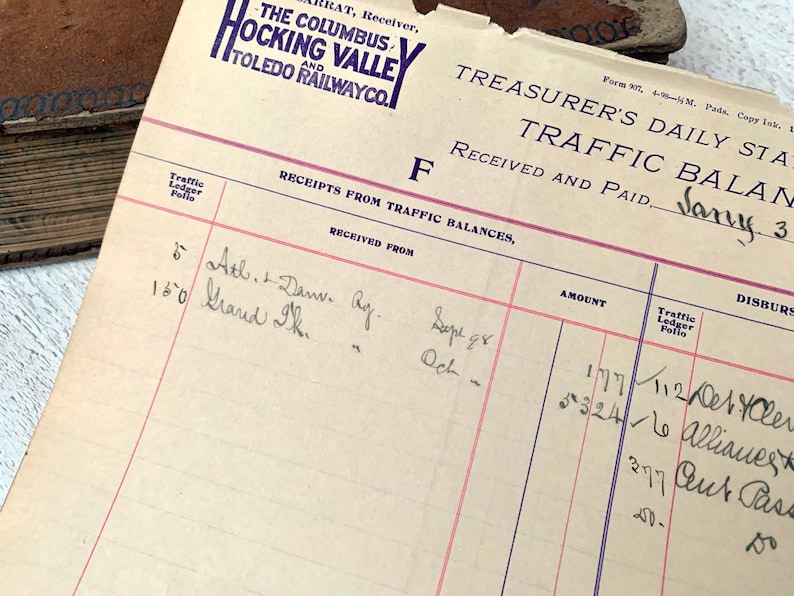 ARRAT, Receiver,
THE COLUMBUS
HOCKING VALLEY
AND
TOLEDO RAILWAY CO.
Form 907. 4-98—½M. Pads. Copy Ink. 1
TREASURER'S DAILY STA
TRAFFIC BALAN
F
RECEIVED AND PAID, Jany. 3
Traffic Ledger Folio
RECEIPTS FROM TRAFFIC BALANCES,
RECEIVED FROM
AMOUNT
DISBURS
Traffic Ledger Folio
5 Atl. & Danv. Ry. Sept 98 177
150 Grand Tk. " Oct " 5324
112 Det & Clev
6 Alliance &
377 Cent Pass
Do. Do